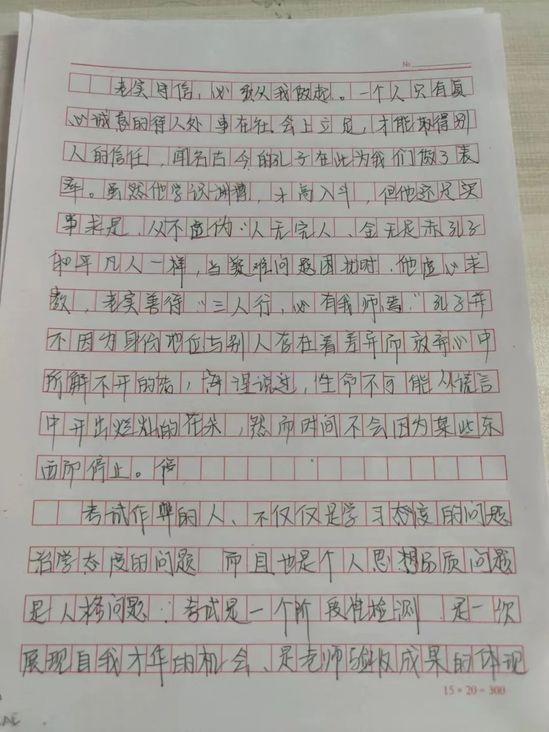 №
老实守信，必须从我做起。一个人只有真
心诚意的待人处事在社会上立足，才能取得别
人的信任，闻名古今的孔子在此为我们做了表
率。虽然他学识渊博，才高八斗，但他还是实
事求是，从不虚伪“人无完人、金无足赤孔子
和平凡人一样，当疑难问题困扰时，他虚心求
教，老实善待“三人行，必有我师焉。”孔子并
不因为身份地位与别人存在着差异而放弃心中
所解不开的结，海涅说过，生命不可能从谎言
中开出灿烂的花朵，然而时间不会因为某些东
西而停止。
考试作弊的人、不仅仅是学习态度的问题
治学态度的问题 而且也是个人思想品质问题
是人格问题；考试是一个阶段性检测 是一次
展现自我才华的机会、是老师验收成果的体现
15×20=300